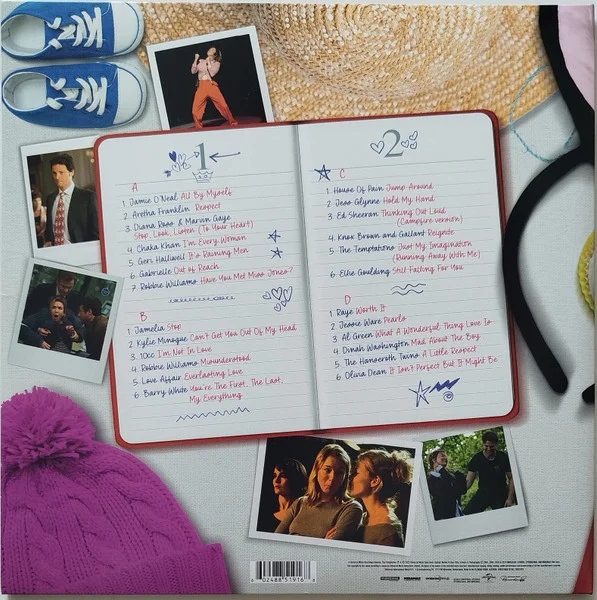 1
A
1 Jamie O'Neal All By Myself
2 Aretha Franklin Respect
3 Diana Ross & Marvin Gaye
Stop, Look, Listen (To Your Heart)
4 Chaka Khan I'm Every Woman
5 Geri Halliwell It's Raining Men
6 Gabrielle Out of Reach
7 Robbie Williams Have You Met Miss Jones?
B
1 Jamelia Stop
2 Kylie Minogue Can't Get You Out Of My Head
3 10cc I'm Not In Love
4 Robbie Williams Misunderstood
5 Love Affair Everlasting Love
6 Barry White You're The First, The Last,
My Everything
2
C
1 House Of Pain Jump Around
2 Jess Glynne Hold My Hand
3 Ed Sheeran Thinking Out Loud
(Campfire version)
4 Knox Brown and Gallant Reignite
5 The Temptations Just My Imagination
(Running Away With Me)
6 Ellie Goulding Still Falling For You
D
1 Raye Worth It
2 Jessie Ware Pearls
3 Al Green What A Wonderful Thing Love Is
4 Dinah Washington Mad About The Boy
5 The Hanseroth Twins A Little Respect
6 Olivia Dean It Isn't Perfect But It Might Be
6 02488 51916